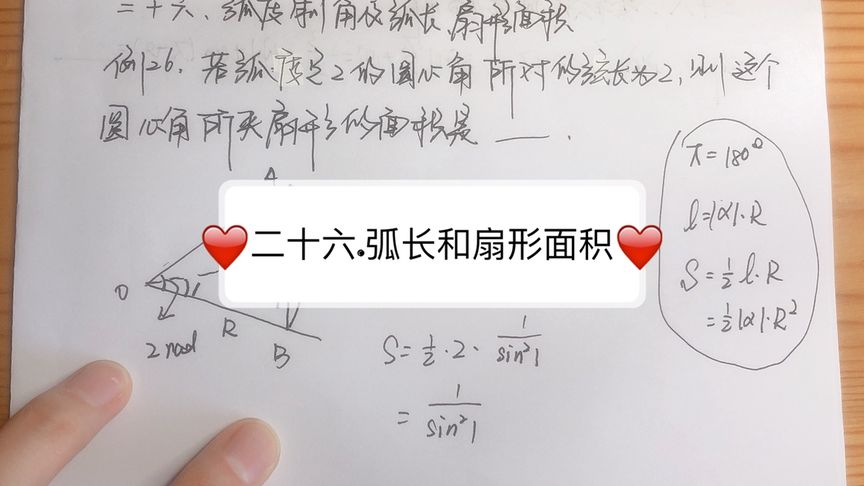 二十六、弧度制角及弧长,扇形面积
例26. 若弧度是2的圆心角所对的弦长为2,则这个
圆心角所夹扇形的面积是 ___ .
A
❤️二十六.弧长和扇形面积❤️
O
2 rad
R
B
S=½·2·1/sin²1
=1/sin²1
π=180°
l=|α|·R
S=½l·R
=½|α|·R²